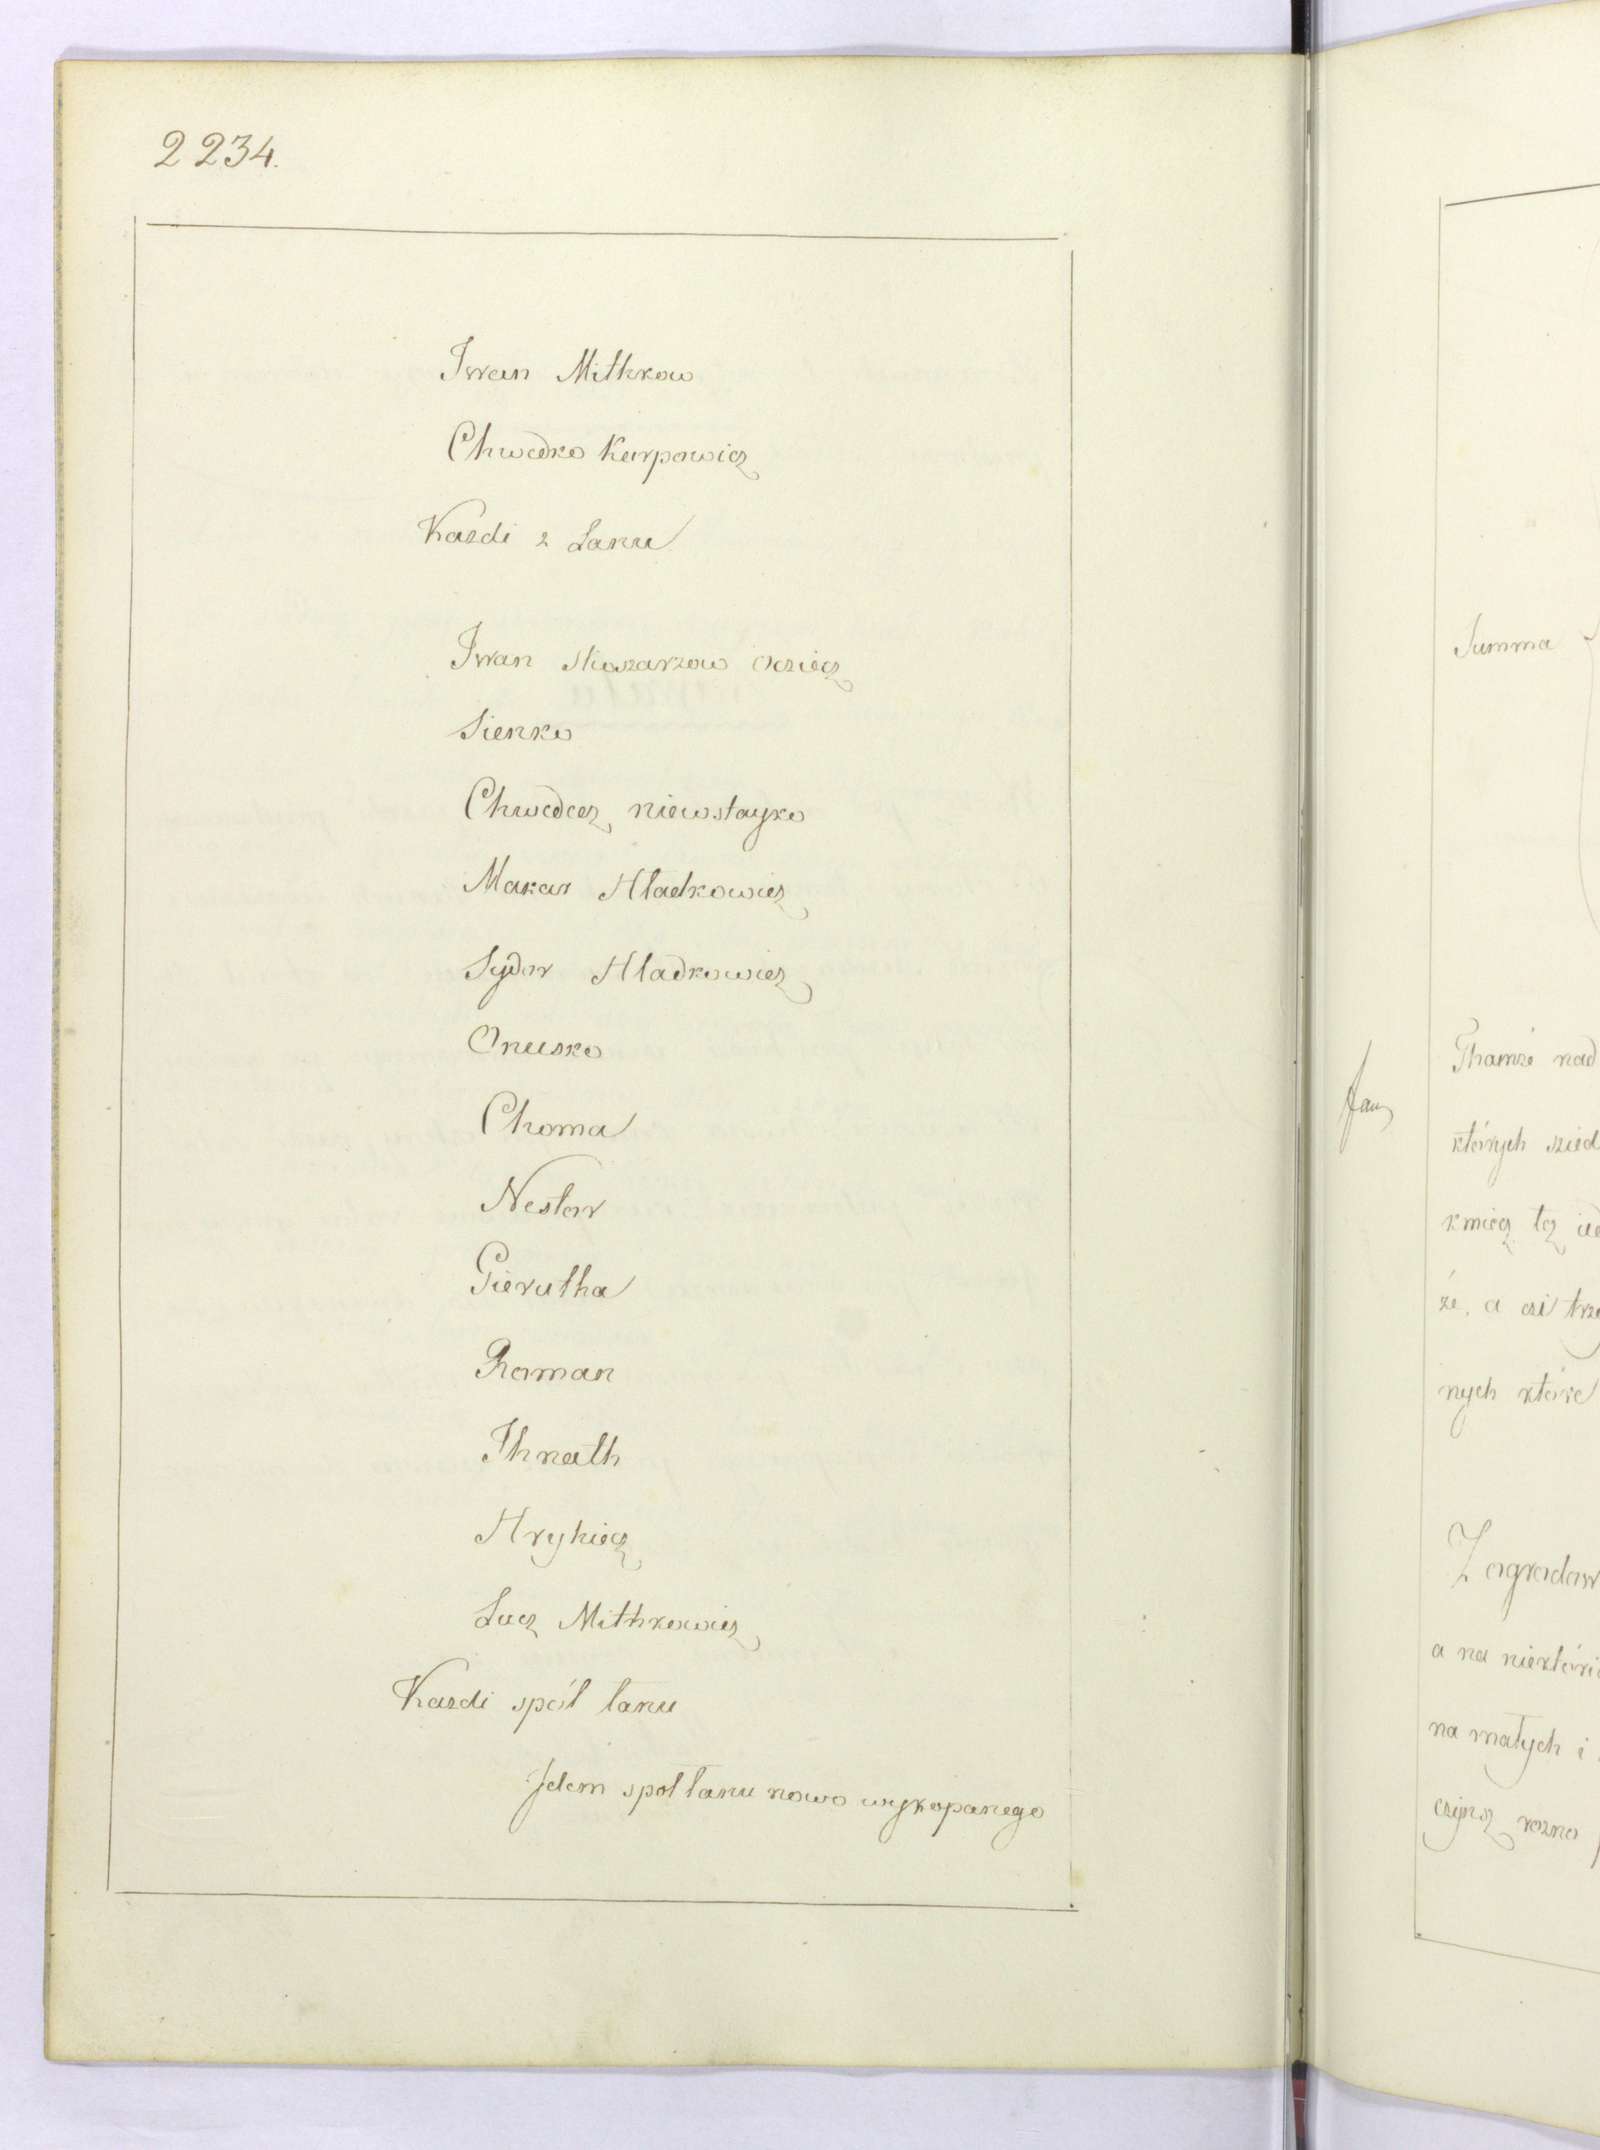 2234.
Iwan Mithkow
Chwedko Karpowicz
Kazdi z Lanu
Iwan Skozarzow Ocziecz
Sienko
Chwedcez niewstayko
Makar Hladkowicz
Sydor Hladkowicz
Onusko
Choma
Nestor
Gierutha
Roman
Ihnath
Hrykiecz
Lucz Mithkowicz
Kazdi spół łanu
Idem spół łanu nowo wykopanego
Summa
Thamże nad
których szied
kmiecz tcz
że, a czi trze
nych które
Zagrodow
a na niektóri
na małych i
czinsz rozno